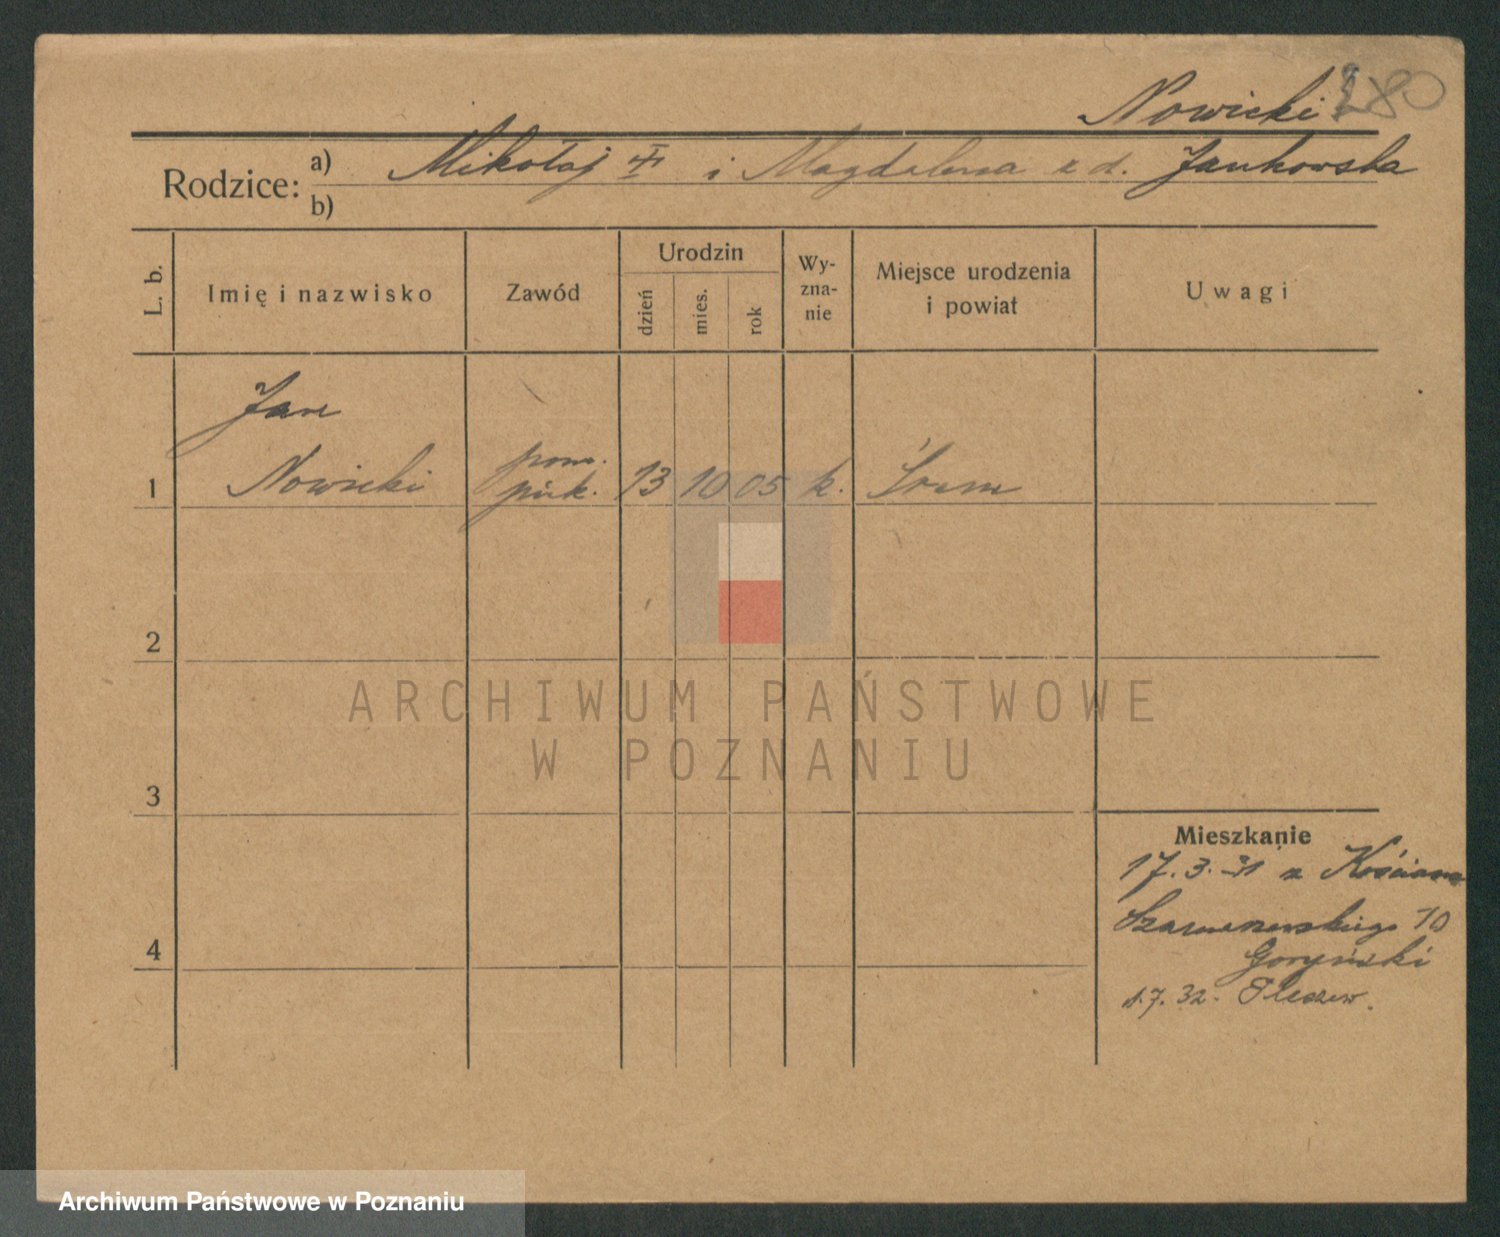 Nowicki 280
Rodzice: a) Mikołaj i Magdalena z d. Jankowska
b)
L. b. Imię i nazwisko Zawód Urodzin dzień mies. rok Wy-zna-nie Miejsce urodzenia i powiat Uwagi
Jan
1 Nowicki pom. piek. 13 10 05 k. Śrem
2
ARCHIWUM PAŃSTWOWE
W POZNANIU
3
Mieszkanie
17.3.31 z Kościana
10
4 Goryński
1.7.32. Pleszew.
Archiwum Państwowe w Poznaniu